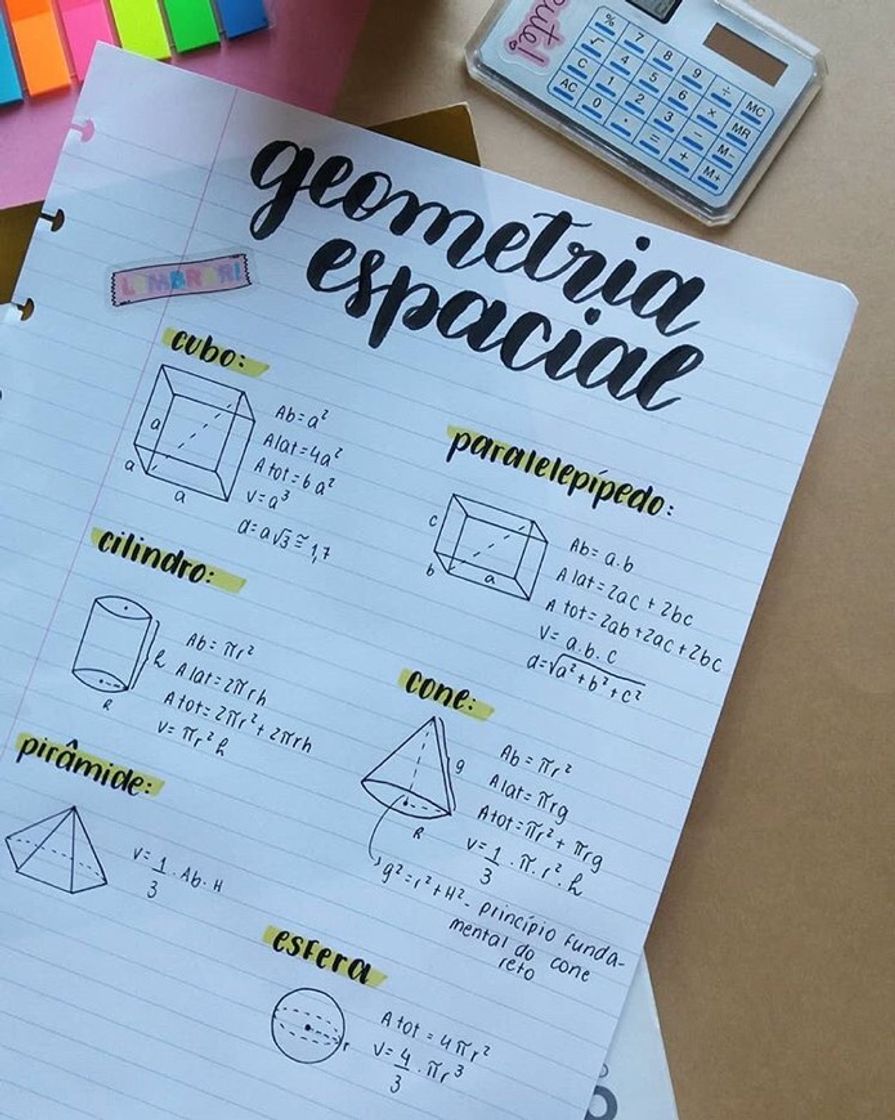 % 7 8 9 ÷ MC
√ 4 5 6 × MR
C 1 2 3 − M-
AC 0 . = + M+
geometria
espacial
LEMBRAR!
cubo:
a
a
a
Ab = a²
Alat = 4a²
Atot = 6a²
V = a³
d = a√3 ≅ 1,7
paralelepípedo:
c
b
a
Ab = a.b
Alat = 2ac + 2bc
Atot = 2ab + 2ac + 2bc
V = a.b.c
d = √a² + b² + c²
cilindro:
h
R
Ab = πr²
Alat = 2πrh
Atot = 2πr² + 2πrh
V = πr²h
cone:
g
R
Ab = πr²
Alat = πrg
Atot = πr² + πrg
V = 1/3 . π . r² . h
g² = r² + H² - princípio funda-
mental do cone
reto
pirâmide:
V = 1/3 . Ab . H
esfera
r
Atot = 4πr²
V = 4/3 . πr³